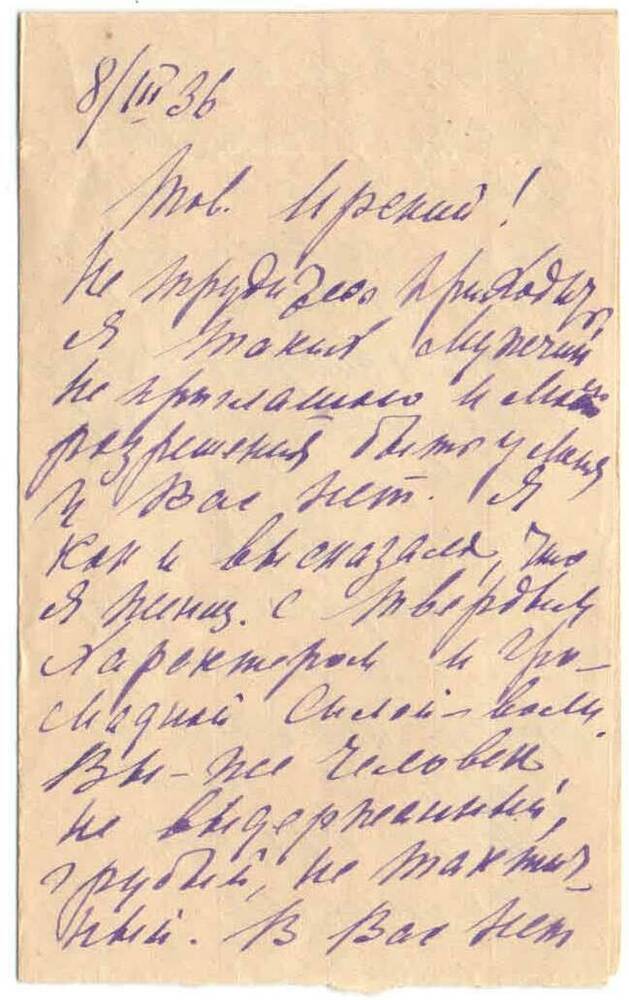 8/III 36
Тов. Ирский!
Не трудитесь приходить,
Я таких мужчин
не приглашаю и моего
разрешения быть у меня
у Вас нет. Я
как и высказала, что
я женщ. с твердым
характером и гро-
мадной силой-воли.
Вы-же человек
не выдержанный,
грубый, не тактич-
ный. В Вас нет